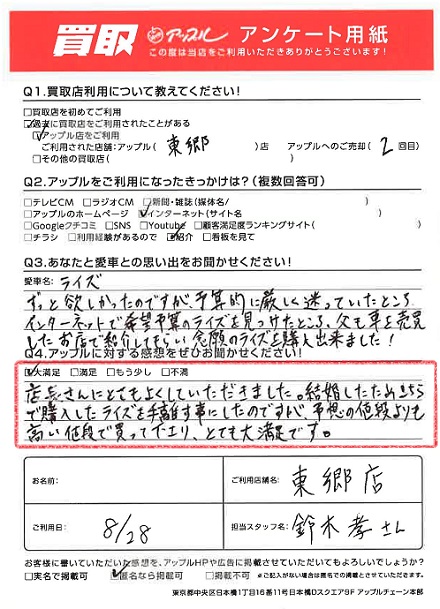 買取 アップル アンケート用紙
この度は当店をご利用いただきありがとうございます!
Q1.買取店利用について教えてください!
□買取店を初めてご利用
☑過去に買取店をご利用されたことがある
☑アップル店をご利用
ご利用された店舗:アップル( 東郷 )店 アップルへのご売却( 2 回目)
□その他の買取店( )
Q2.アップルをご利用になったきっかけは?(複数回答可)
□テレビCM □ラジオCM □新聞・雑誌(媒体名/ )
□アップルのホームページ ☑インターネット(サイト名 )
□Googleクチコミ □SNS □Youtube □顧客満足度ランキングサイト( )
□チラシ □利用経験があるので ☑紹介 □看板を見て
Q3.あなたと愛車との思い出をお聞かせください!
愛車名: ライズ
ずっと欲しかったのですが、予算的に厳しく迷っていたところ
インターネットで希望予算のライズを見つけたところ、父も車を売買
したお店で紹介してもらい念願のライズを購入出来ました!
Q4.アップルに対する感想をぜひお聞かせください!
☑大満足 □満足 □もう少し □不満
店長さんにとてもよくしていただきました。結婚したためこちら
で購入したライズを手離す事にしたのですが、予想の値段よりも
高い値段で買って下さり、とても大満足です。
お名前:
ご利用店舗名: 東郷店
ご利用日: 8/28
担当スタッフ名: 鈴木孝さん
お客様に書いていただいた感想を、アップルHPや広告に掲載させていただいてもよろしいでしょうか?
□実名で掲載可 ☑匿名なら掲載可 □掲載不可 ※ご記入がない場合は匿名での掲載とさせていただきます。
東京都中央区日本橋1丁目16番11号日本橋Dスクエア9F アップルチェーン本部